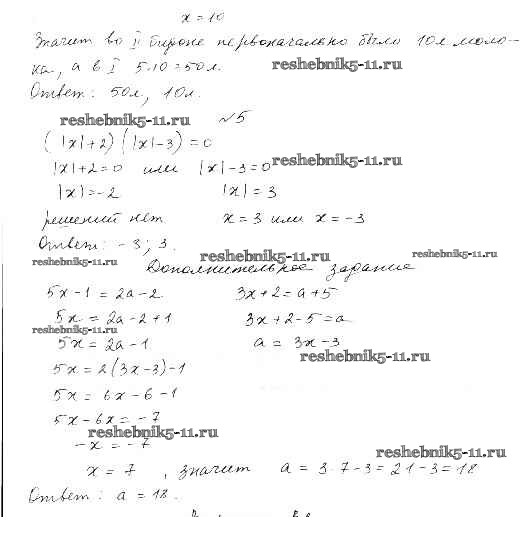 x = 10
Значит во II бидоне первоначально было 10л моло-
ка, а в I 5·10=50л. reshebnik5-11.ru
Ответ: 50л, 10л.
reshebnik5-11.ru №5
(|x|+2)(|x|-3)=0
|x|+2=0 или |x|-3=0 reshebnik5-11.ru
|x|=-2 |x|=3
решений нет x=3 или x=-3
Ответ: -3; 3.
reshebnik5-11.ru reshebnik5-11.ru reshebnik5-11.ru
Дополнительное задание
5x-1=2a-2 3x+2=a+5
5x=2a-2+1 3x+2-5=a
reshebnik5-11.ru
5x=2a-1 a=3x-3
reshebnik5-11.ru
5x=2(3x-3)-1
5x=6x-6-1
5x-6x=-7
reshebnik5-11.ru
-x=-7
reshebnik5-11.ru
x=7, значит a=3·7-3=21-3=18
Ответ: a=18.